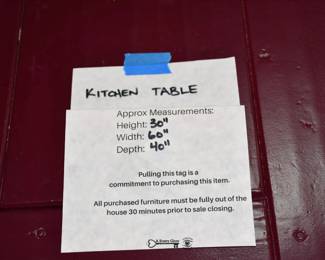 KITCHEN TABLE
Approx Measurements:
Height: 30"
Width: 60"
Depth: 40"
Pulling this tag is a
commitment to purchasing this item.
All purchased furniture must be fully out of the
house 30 minutes prior to sale closing.